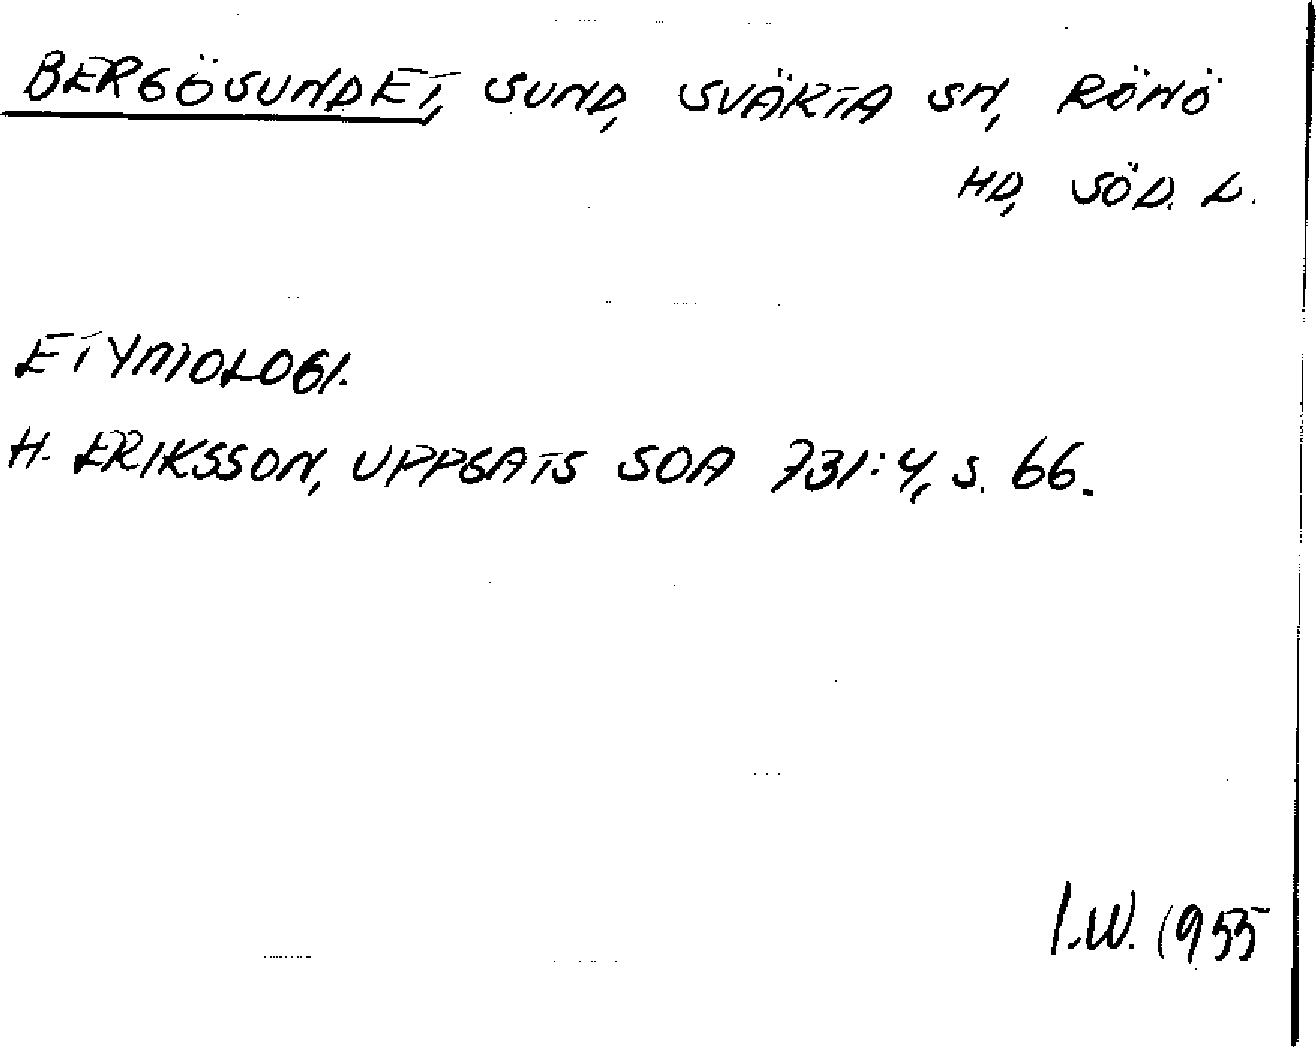 BERGÖSUNDET, SUND, SVÄRTA SN, RÖNÖ
HD, SÖD. L.
ETYMOLOGI.
H. ERIKSSON, UPPGATS SOA 731:4, S. 66.
I.W. 1955